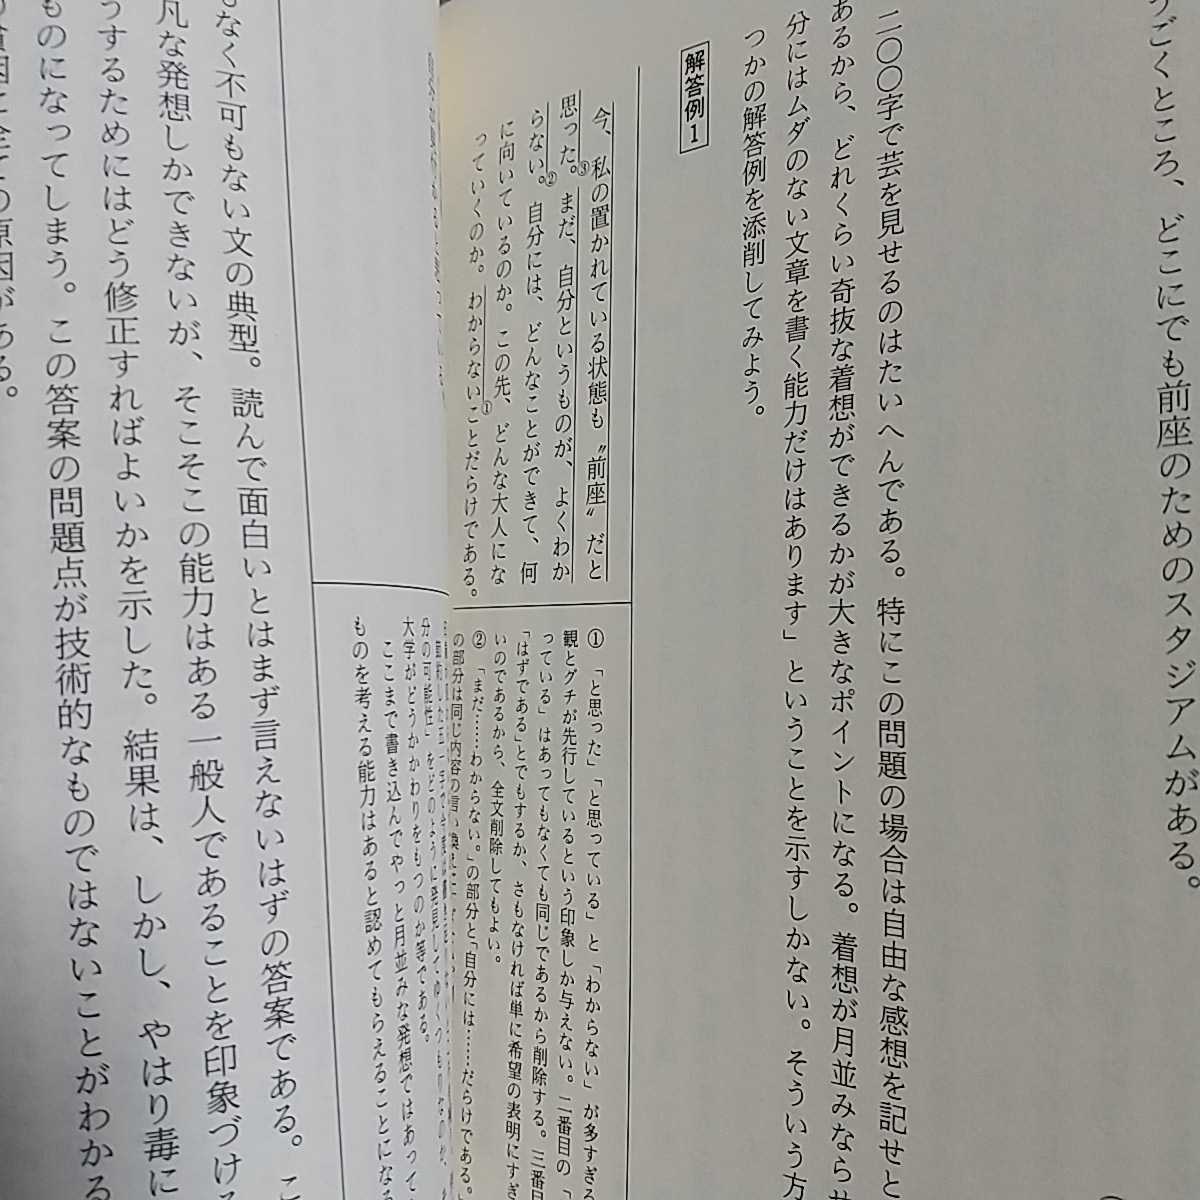 うごくところ、どこにでも前座のためのスタジアムがある。
二〇〇字で芸を見せるのはたいへんである。特にこの問題の場合は自由な感想を記せと
あるから、どれくらい奇抜な着想ができるかが大きなポイントになる。着想が月並みならせ
分にはムダのない文章を書く能力だけはあります」ということを示すしかない。そういう方
つかの解答例を添削してみよう。
解答例1
今、私の置かれている状態も〝前座〟だと
思った。③まだ、自分というものが、よくわか
らない。②自分には、どんなことができて、何
に向いているのか。この先、どんな大人にな
っていくのか。わからない①ことだらけである。
① 「と思った」「と思っている」と「わからない」が多すぎる
観とグチが先行しているという印象しか与えない。二番目の「
っている」はあってもなくても同じであるから削除する。三番目
「はずである」とでもするか、さもなければ単に希望の表明にすぎ
いのであるから、全文削除してもよい。
② 「まだ……わからない。」の部分と「自分には……だらけである。」
の部分は同じ内容の言い換え
分の可能性」をどのように発見して、ゆくつもりなのか、
大学がどうかかわりをもつのか等である。
ここまで書き込んでやっと月並みな発想ではあって
ものを考える能力はあると認めてもらえることになる
もなく不可もない文の典型。読んで面白いとはまず言えないはずの答案である。こ
凡な発想しかできないが、そこそこの能力はある一般人であることを印象づけ
うするためにはどう修正すればよいかを示した。結果は、しかし、やはり毒に
ものになってしまう。この答案の問題点が技術的なものではないことがわかる
の貧困に全ての原因がある。